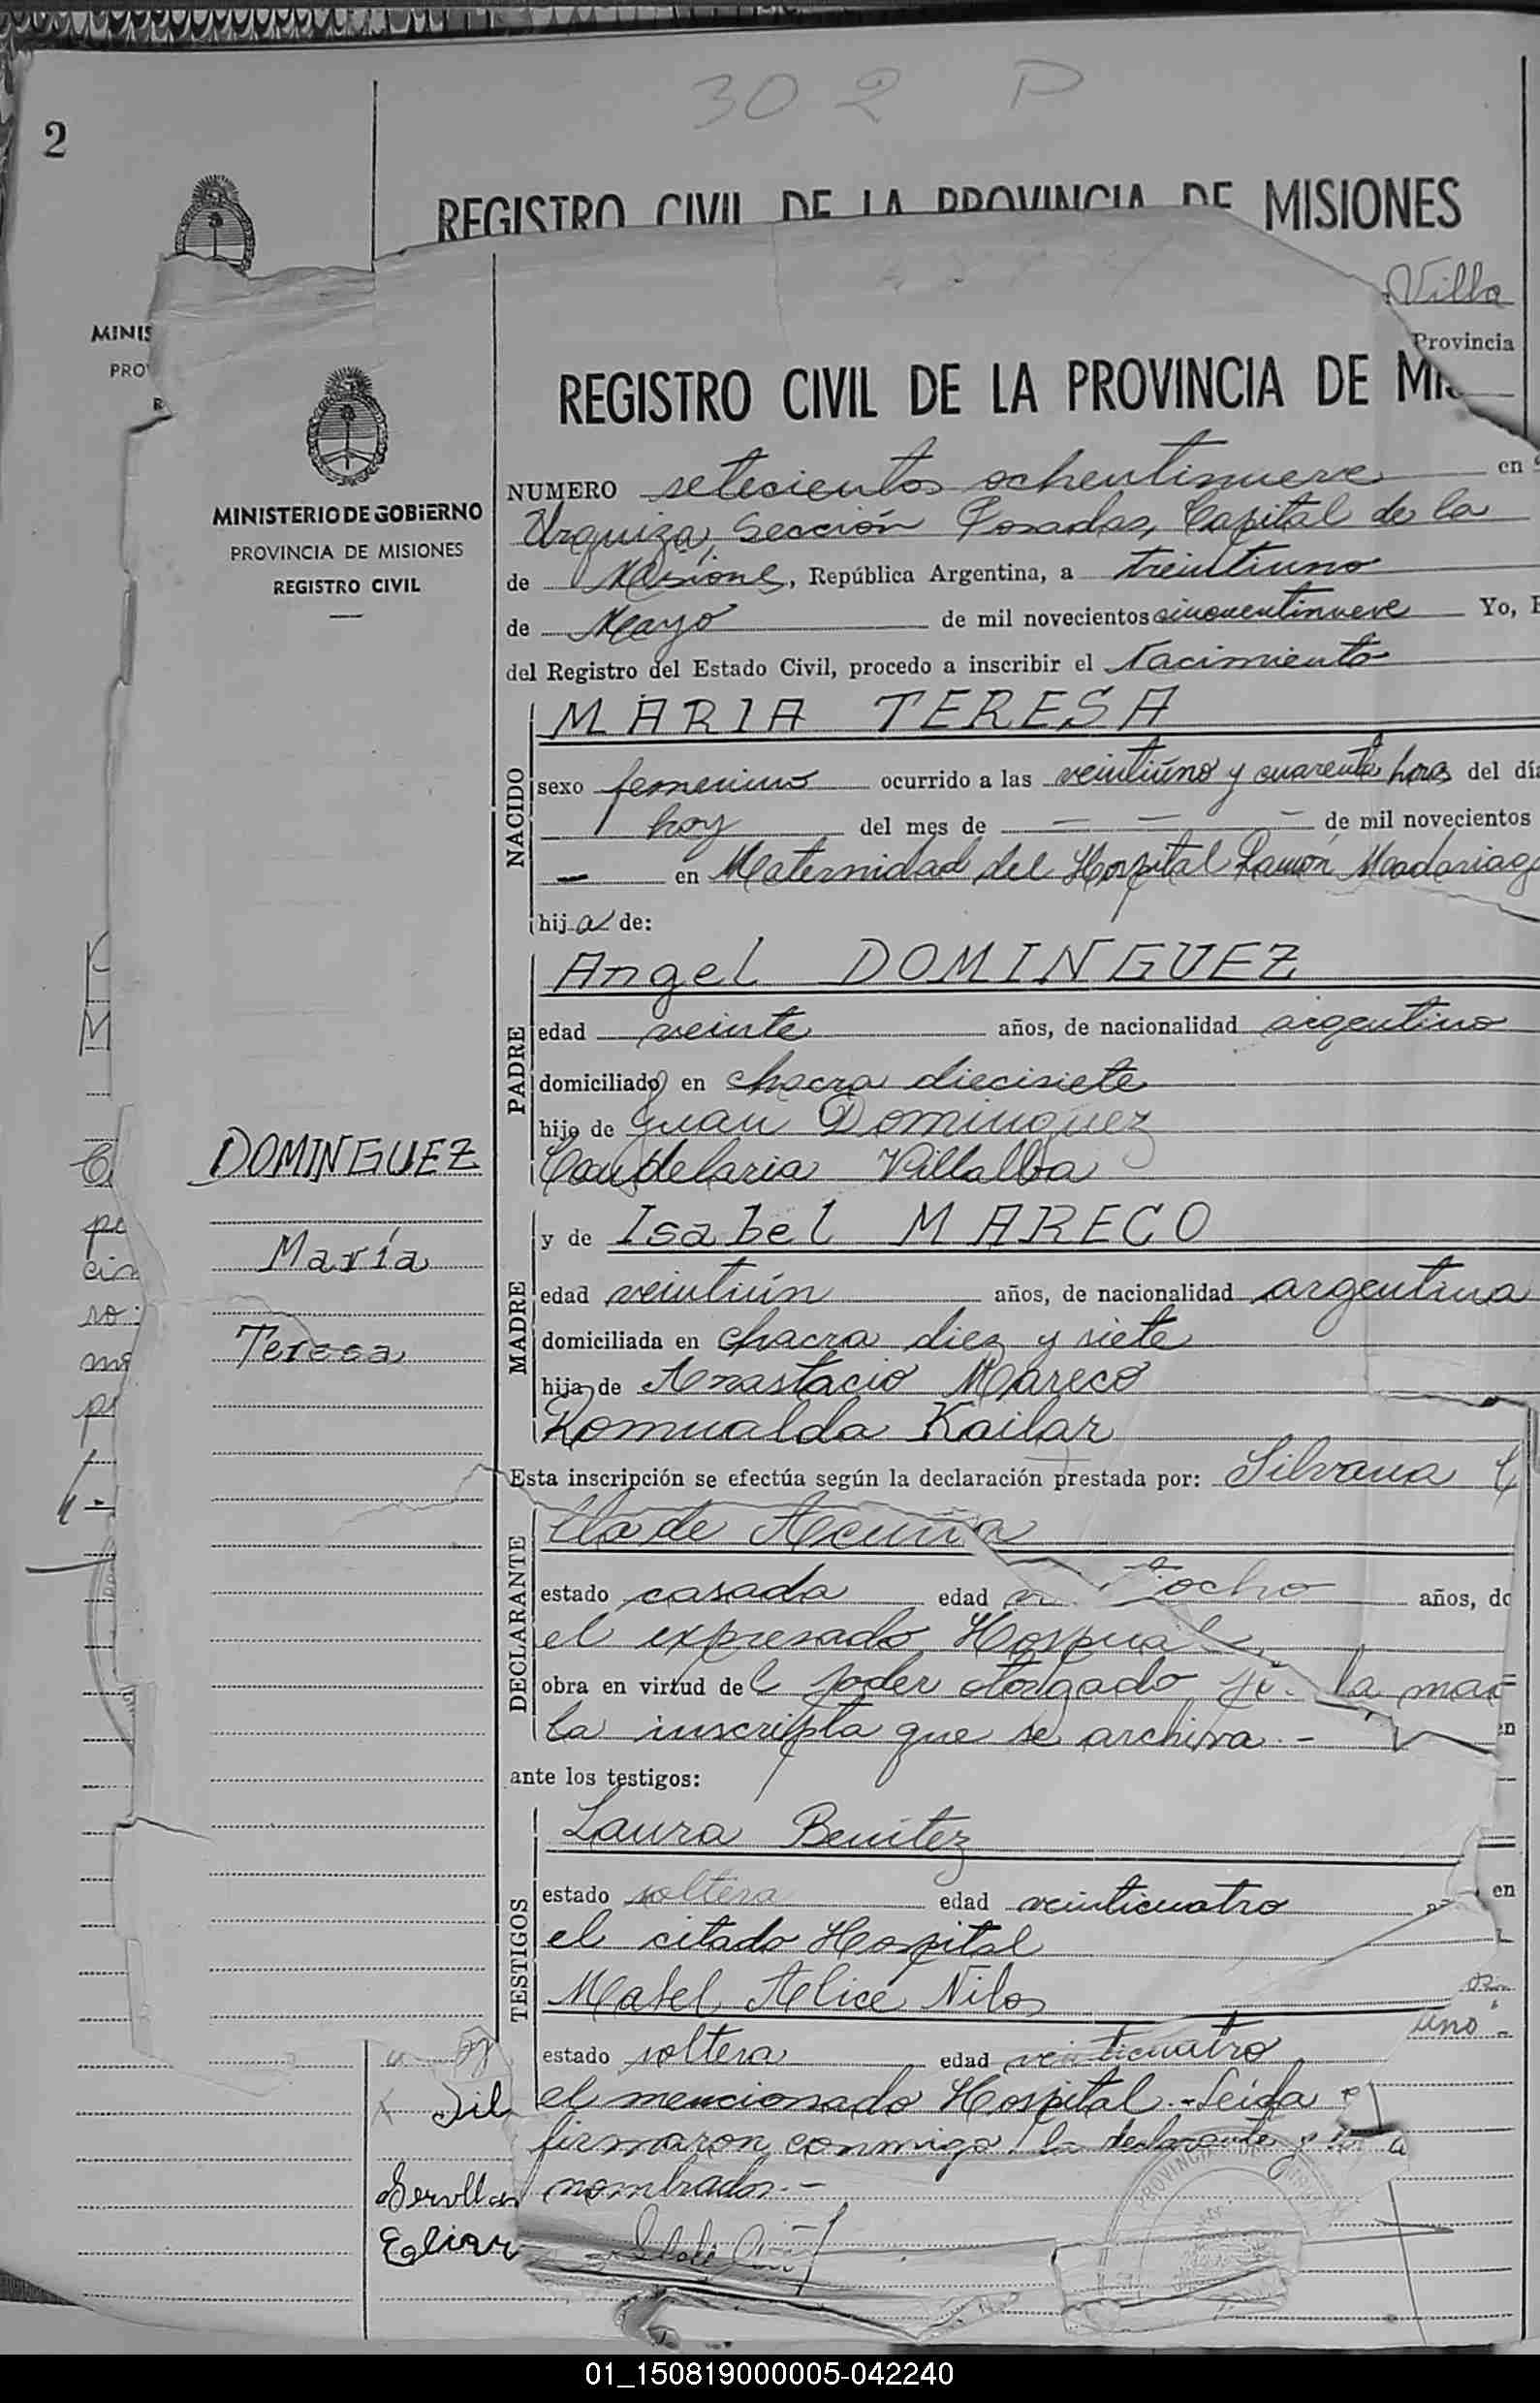 302 P
2
REGISTRO CIVIL DE LA PROVINCIA DE MISIONES
Villa
MINIS
Provincia
PRO
R
REGISTRO CIVIL DE LA PROVINCIA DE MIS
MINISTERIO DE GOBIERNO
PROVINCIA DE MISIONES
REGISTRO CIVIL
NUMERO setecientos ochentinueve en
Urquiza, Sección Posadas, Capital de la
de Misiones, República Argentina, a treintiuno
de Mayo de mil novecientos cincuentinueve Yo,
del Registro del Estado Civil, procedo a inscribir el Nacimiento
NACIDO
MARIA TERESA
sexo femenino ocurrido a las veintiúno y cuarenta horas del día
hoy del mes de — — — de mil novecientos
— en Maternidad del Hospital Ramón Madariaga
hija de:
PADRE
Angel DOMINGUEZ
edad veinte años, de nacionalidad argentino
domiciliado en chacra diecisiete
hijo de Juan Dominguez
Candelaria Villalba
DOMINGUEZ
María
Teresa
MADRE
y de Isabel MARECO
edad veintiún años, de nacionalidad argentina
domiciliada en chacra diez y siete
hija de Anastacio Mareco
Romualda Kailar
Esta inscripción se efectúa según la declaración prestada por: Silvana
DECLARANTE
lla de Acuña
estado casada edad ocho años, do
el expresado Hospital
obra en virtud del poder otorgado la mad
la inscripta que se archiva.-
ante los testigos:
TESTIGOS
Laura Benitez
estado soltera edad veinticuatro
en
el citado Hospital
Mabel Alice Nilos
uno -
estado soltera edad veinticuatro
el mencionado Hospital.- Leída
Sil
firmaron conmigo la declarante y
nombrados.-
01_150819000005-042240